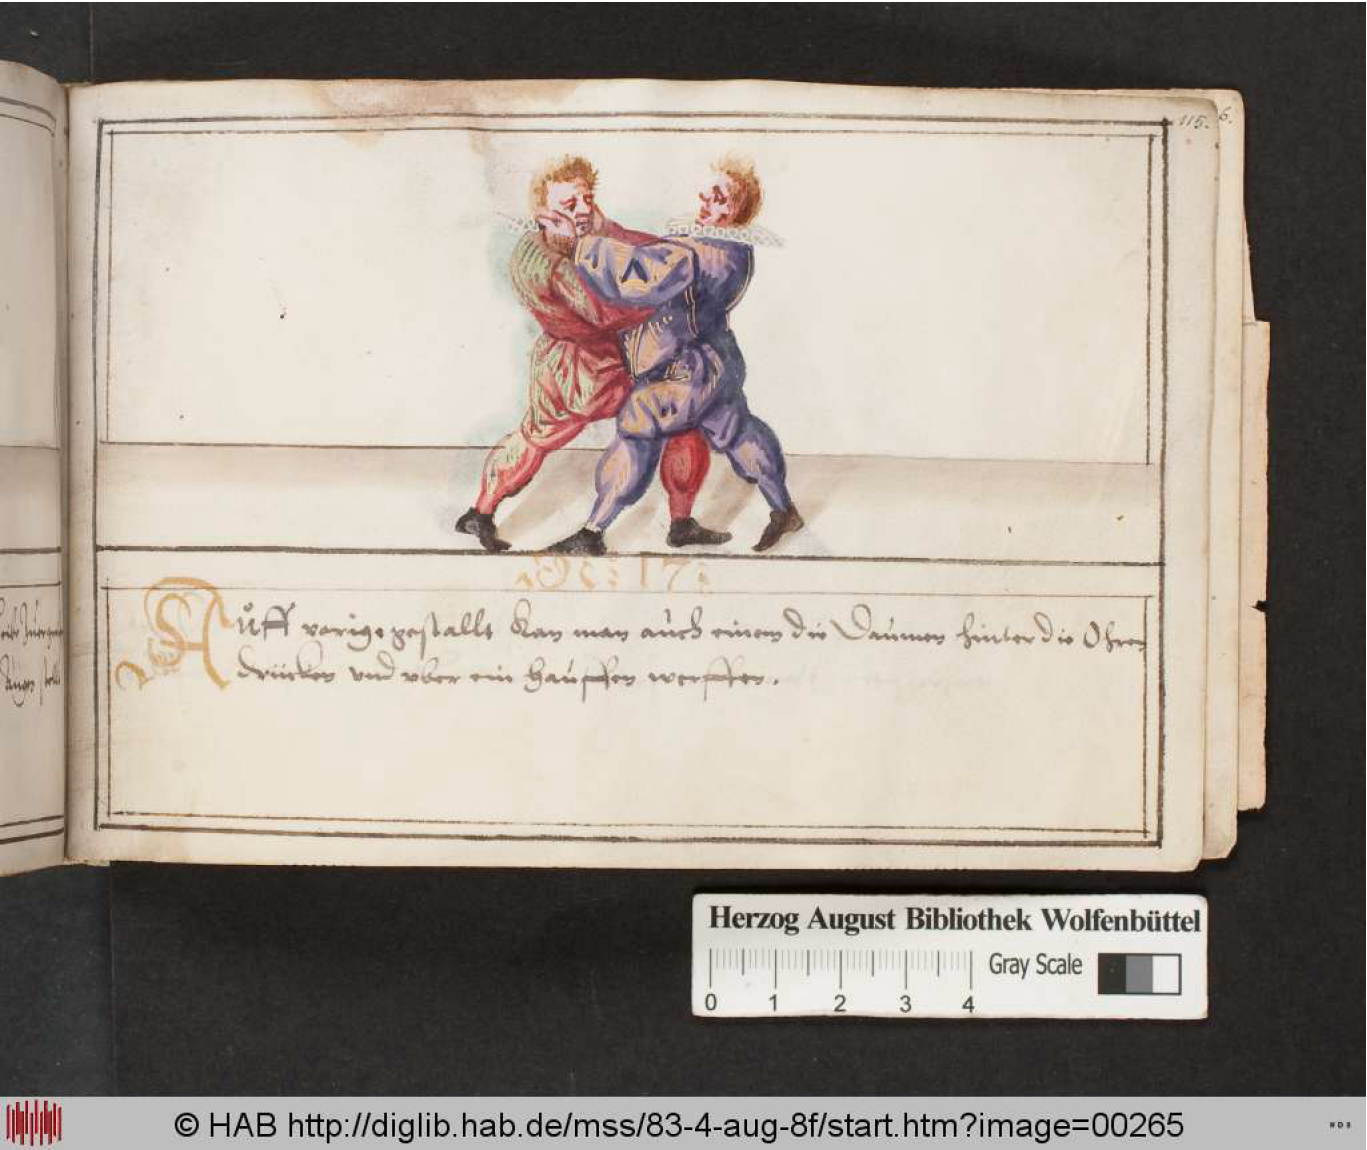 115.
6.
17
Aůff vorige gestallt Kan man auch einem die Daumen hinter die Ohren
drücken und vber ein hauffen werffen.
Herzog August Bibliothek Wolfenbüttel
Gray Scale
0 1 2 3 4
© HAB http://diglib.hab.de/mss/83-4-aug-8f/start.htm?image=00265